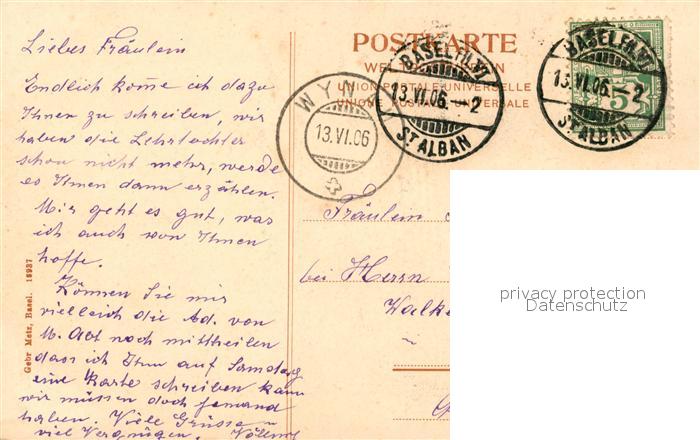 Liebes Fräulein
Endlich kome ich dazu
Ihnen zu schreiben, wir
haben die Lehrtochter
schon nicht mehr, werde
es Ihnen dann erzählen.
Mir geht es gut, was
ich auch von Ihnen
hoffe.
Können Sie mir
vielleich die Ad. von
M. Abt noch mittheilen
dass ich Ihm auf Samstag
eine Karte schreiben kann
wir müssen doch jemand
haben. Viele Grüsse
viel Vergnügen.
Gebr Metz, Basel. 18937
POSTKARTE
UNION POSTALE UNIVERSELLE
UNIONE POSTALE UNIVERSALE
WYN
13.VI.06
BASEL FIL.VI
13.VI.06.–2
ST. ALBAN
BASEL FIL.VI
13.VI.06.–2
ST. ALBAN
5
Fräulein
bei Herrn
Walke
privacy protection
Datenschutz